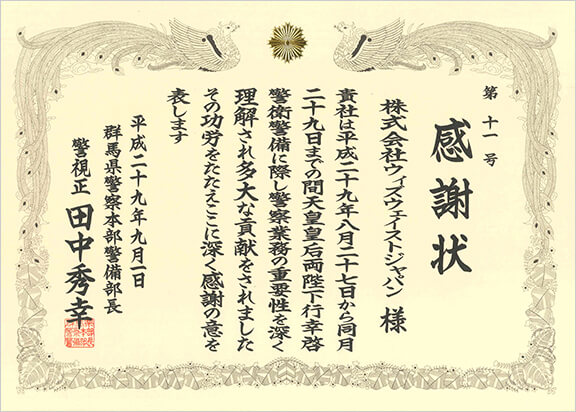 感謝状
第十一号
株式会社ウィズウェイストジャパン 様
貴社は平成二十九年八月二十七日から同月
二十九日までの間天皇皇后両陛下行幸啓
警衛警備に際し警察業務の重要性を深く
理解され多大な貢献をされました
その功労をたたえここに深く感謝の意を
表します
平成二十九年九月一日
群馬県警察本部警備部長
警視正 田中秀幸